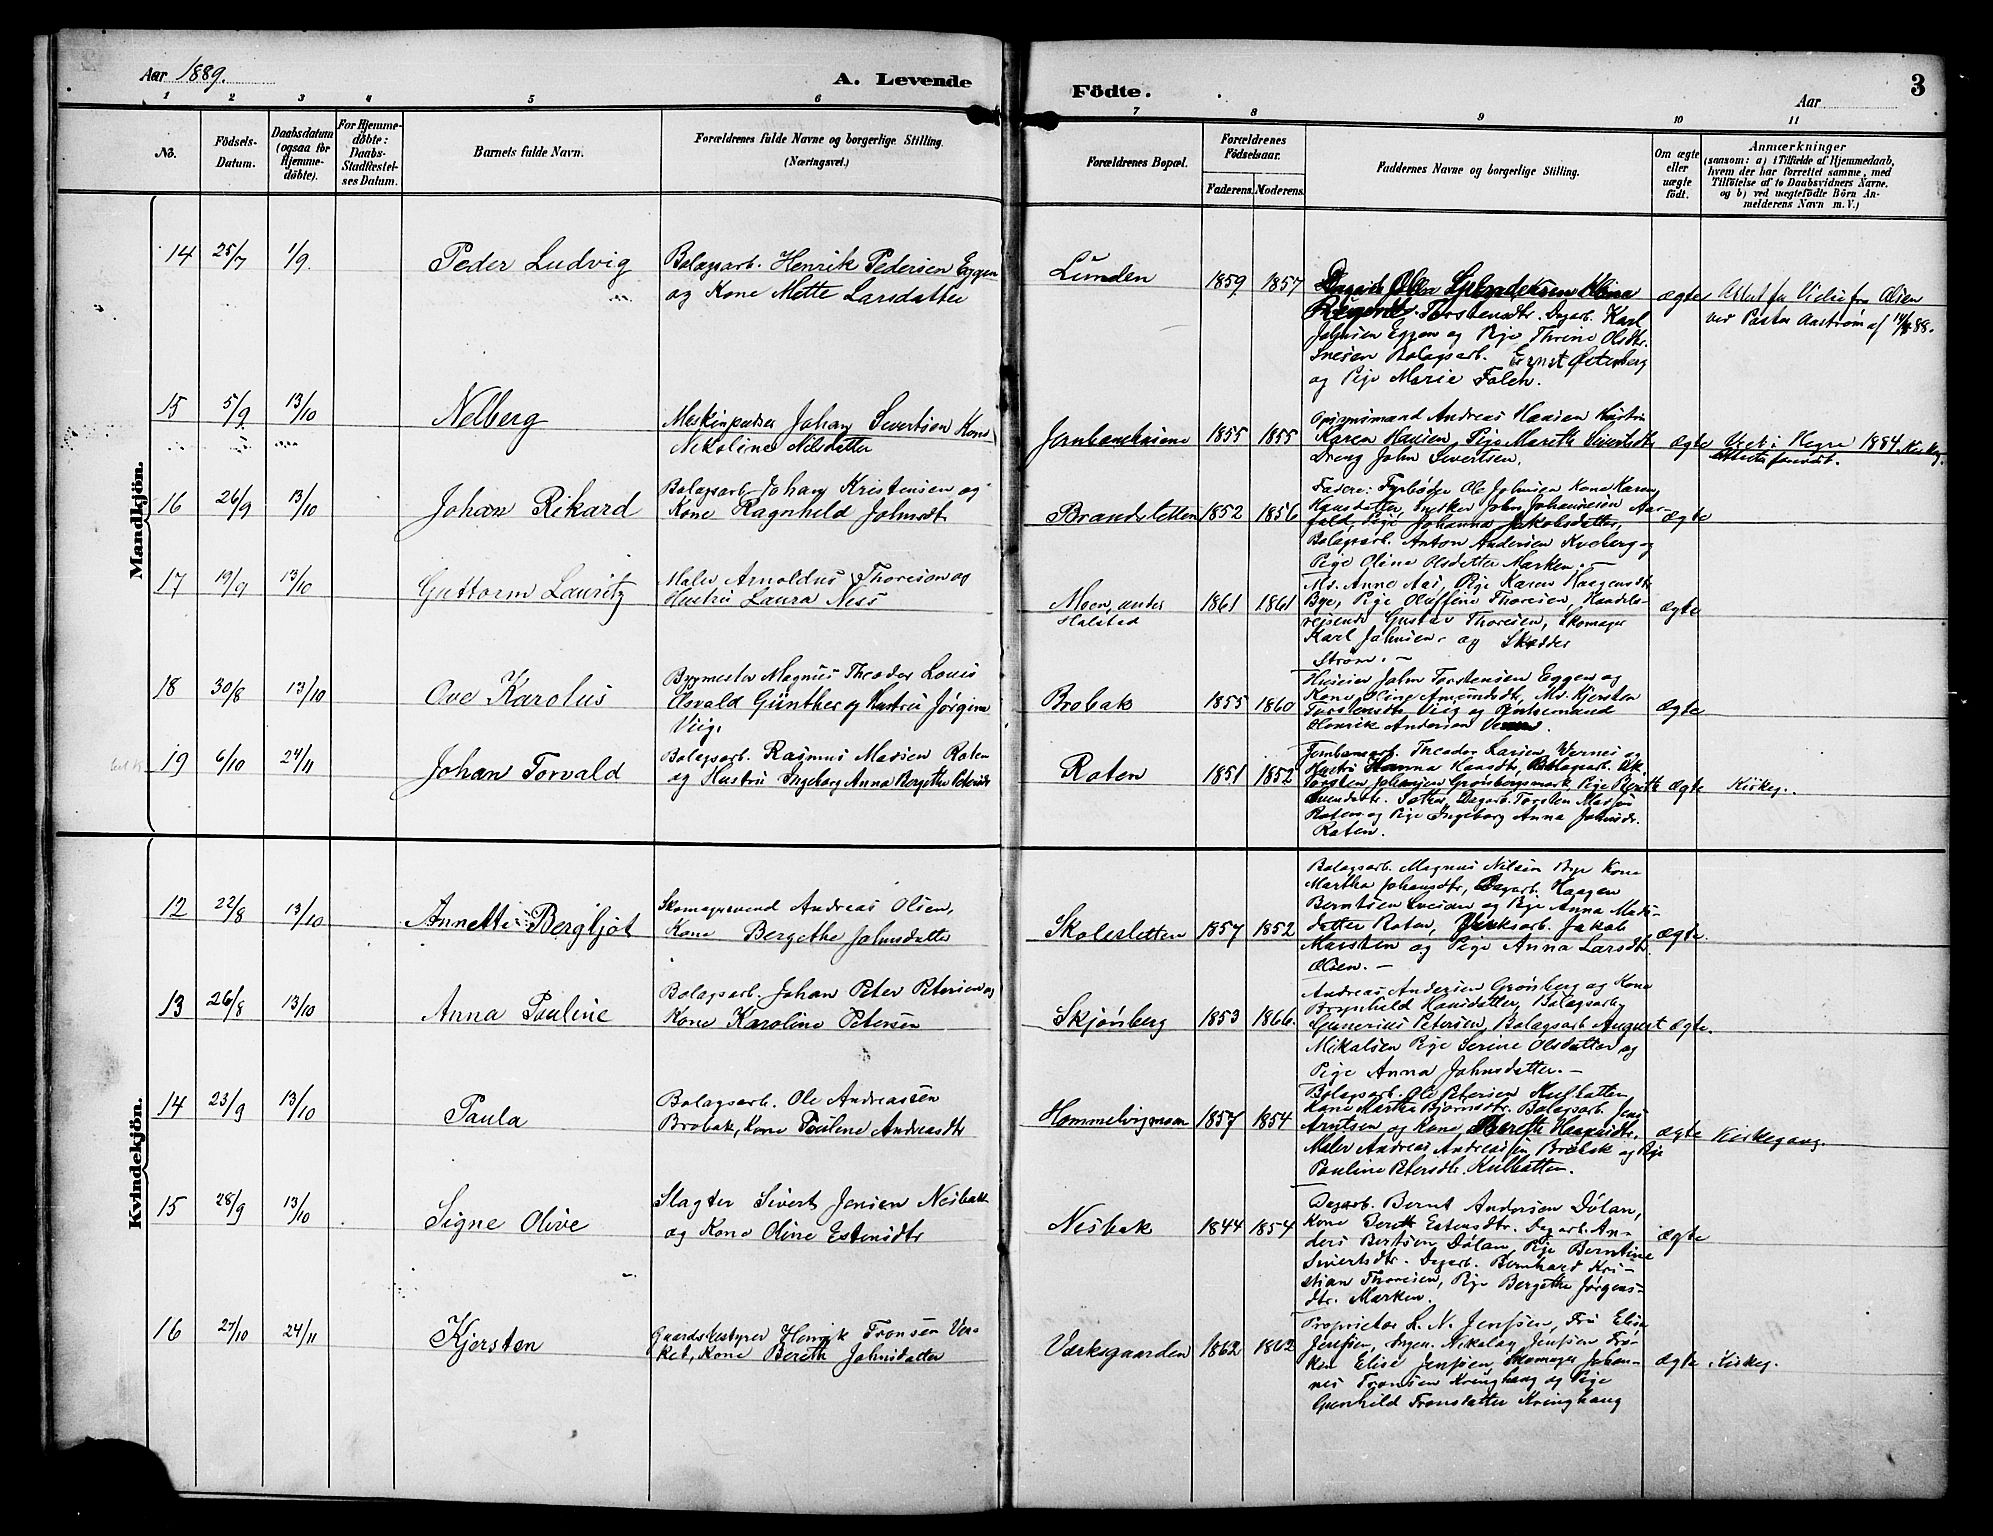 Aar 1889.
A. Levende
Födte.
Aar
3
1 2 3 4 5 6 7 8 9 10 11
No.
Födsels-
Datum.
Daabsdatum
(ogsaa for
Hjemme-
døbte).
For Hjemme-
døbte:
Daabs-
Stadfæstel-
ses Datum.
Barnets fulde Navn.
Forældrenes fulde Navne og borgerlige Stilling.
(Næringsvei.)
Forældrenes Bopæl.
Forældrenes
Fødselsaar.
Faderens. Moderens.
Faddernes Navne og borgerlige Stilling.
Om ægte
eller
uægte
født.
Anmærkninger
(saasom: a) i Tilfælde af Hjemmedaab,
hvem der har forrettet samme, med
Tilføielse af to Daabsvidners Navne.
og b) ved uægtefødte Börn An-
melderens Navn m. V.)
Mandkjön.
14 25/7 1/9. Peder Ludvig
Bolagsarb. Henrik Pedersen Eggen
og Kone Mette Larsdatter
Lunden 1859 1857
Torstensdtr. Dagarb. Karl
Johnsen Eggen og Pige Thrine Olsdtr.
Bolagsarb. Ernst Østerberg
og Pige Marie Falen.
ægte
ved Pastor Aastrøm af
15 5/9 13/10 Nelberg
Maskinpudser Johan Sivertsen Kone
Nikoline Nilsdatter
Jernbanehusene 1855 1855
Opsynsmand Andreas Hansen Hustru
Karen Hansen, Pige Mareth Sivertsdtr
Dreng John Sivertsen.
ægte
Viet i Hegre 1884. Kirkeg.
Attest forevist.
16 26/9 13/10 Johan Rikard
Bolagsarb. Johan Kristensen og
Kone Ragnhild Johnsdt
Brandsletten 1852 1856
Fadere: Fyrbøder Ole Johnsen Kone Karen
Hansdatter, Snedker John Johannesen Aar-
fald, Pige Johanna Jakobsdatter,
Bolagsarb. Anton Andersen Kveberg og
Pige Oline Olsdatter Marken. —
ægte
17 19/9 13/10 Guttorm Lauritz
Maler Arnoldus Thoresen og
Hustru Laura Ness
Moen, under
Halstad
1861 1861
Md. Anne Aas, Pige Karen Haagensdtr
Bye, Pige Oluffine Thoresen, Handels-
reisende Gustav Thoresen, Skomager
Karl Johnsen. og Skrædder
Strøm. —
ægte
18 30/8 13/10 Ove Karolus
Brygmester Magnus Theodor Louis
Osvald Günther og Hustru Jørgine
Veig.
Brobak 1855 1860
Huseier John Torstensen Eggen og
Kone Oline Amundsdt, Md. Kjersten
Torstensdtr Veig og
Henrik Andersen
ægte
19 6/10 24/11 Johan Torvald
Bolagsarb. Rasmus Madsen Roten
og Hustru Ingeborg Anna Bergethe Petersdt
Roten 1851 1852
Jernbanearb. Theodor Larsen Wernes og
Hustru Hanna Haasdtr, Bolagsarb.
Torsten Johansen Grønbergsmark Pige Bereth
Svendsdtr. Dagarb. Torsten Madsen
Roten og Pige Ingeborg Anna Johnsdtr.
Roten.
ægte Kirkeg.
Kvindekjön.
12 22/8 13/10 Annette Bergljot
Skomagersvend Andreas Olsen,
Kone Bergethe Johnsdatter
Skolesletten 1857 1852
Bolagsarb. Magnus Nilsen Bye Kone
Martha Johansdtr, Dagarb. Haagen
Berntsen Svesian og Pige Anna Mads-
datter Roten, Værksarb. Jakob
Marsten og Pige Anna Larsdtr
Olsen. —
ægte.
13 26/8 13/10 Anna Pauline
Bolagsarb. Johan Peter Petersen og
Kone Karoline Petersen
Skjønberg 1853 1866.
Andreas Andersen Grønberg og Kone
Brynhild Hansdatter, Bolagsarb.
Gunerius Petersen, Bolagsarb August
Mikalsen Pige Serine Olsdatter og
Pige Anna Johnsdatter. —
ægte.
14 23/9 13/10 Paula
Bolagsarb. Ole Andreasen
Brobak, Kone Pauline Andreasdtr
Hommelvigmoen 1857 1854
Bolagsarb. Ole Petersen
Kone Martha Bjørnsdtr. Bolagsarb. Jens
Arntsen og Kone Bereth
Maler Andreas Andreassen Brobak og Pige
Pauline Petersdt.
ægte Kirkegang.
15 28/9 13/10 Signe Olive
Slagter Sivert Jensen Nesbak
og Kone Oline Estensdtr
Nesbak 1844 1854
Dagarb. Bernt Andersen Dølan,
Kone Bereth Estensdtr. Dagarb. An-
ders Bertsen Dølan, Pige Berntine
Sivertsdtr. Dagarb. Bernhard Kri-
stian Thoresen, Pige Bergethe Jørgens-
dtr. Marken.
ægte
16 27/10 24/11 Kjersten
Gaardsbestyrer Henrik Tronsen Ver-
ket, Kone Bereth Johnsdatter
Værksgaarden 1862 1862
Proprietær L. N. Jenssen, Fru Elise
Jenssen, Ingen. Nikolay Jenssen Frø-
ken Elise Jenssen, Skomager Johan-
nes Tronsen Kringhaug og Pige
Gunhild Tronsdatter Kringhaug
ægte Kirkeg.